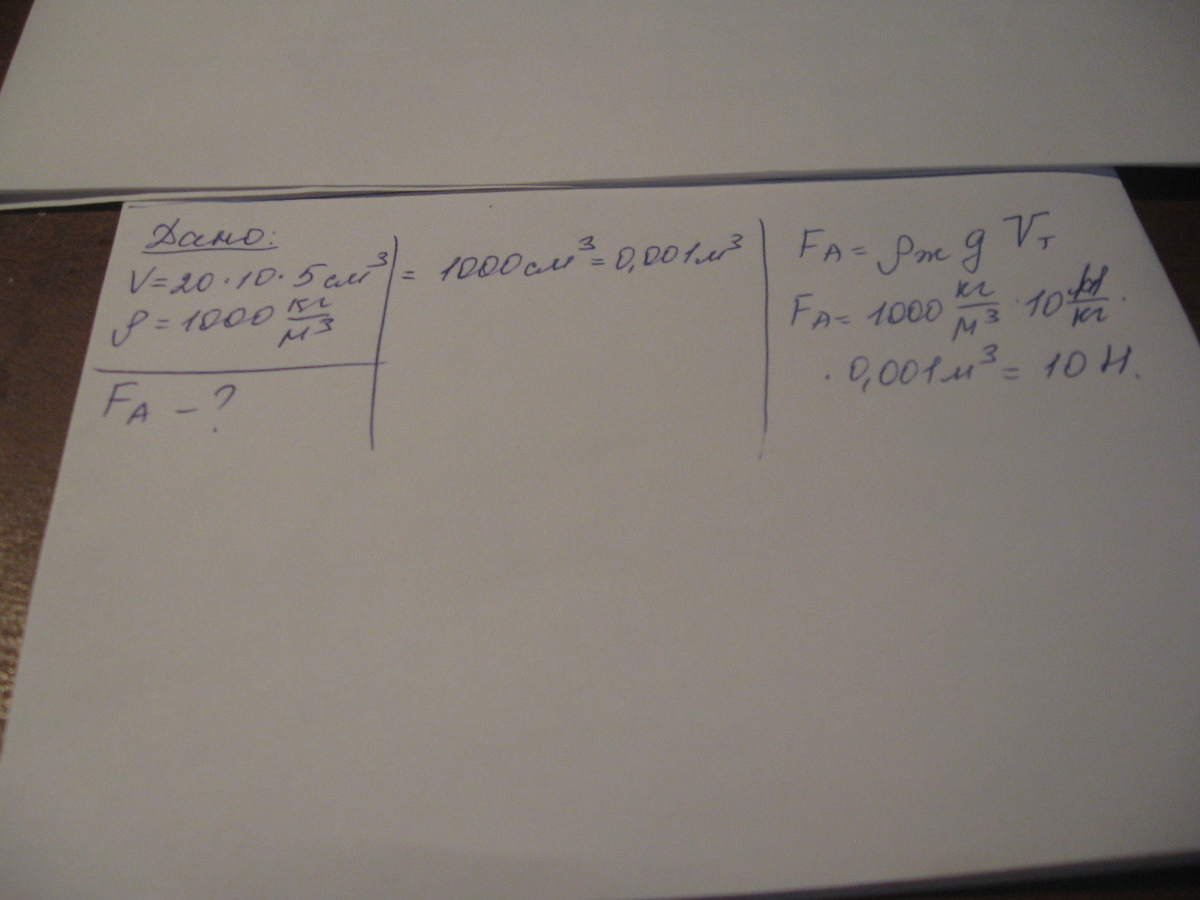 Дано:
V=20·10·5см³ = 1000см³=0,001м³
ρ=1000 кг/м³
F_A – ?
F_A= ρж g V_т
F_A= 1000 кг/м³ · 10 Н/кг ·
· 0,001м³ = 10 Н.